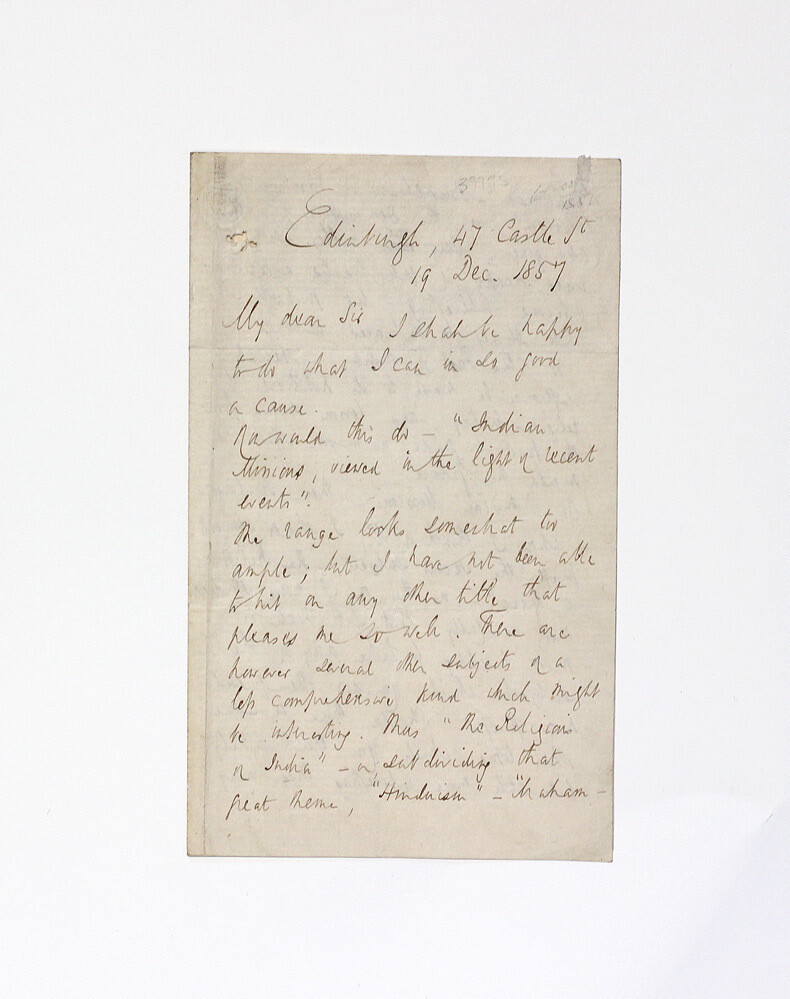 39995
Edinburgh, 47 Castle St
19 Dec. 1857
My dear Sir I shall be happy
to do what I can in so good
a cause.
How would this do – "Indian
Missions, viewed in the light of recent
events".
The range looks somewhat too
ample; but I have not been able
to hit on any other title that
pleases me so well. There are
however several other subjects of a
less comprehensive kind which might
be interesting. Thus "The Religions
of India" – or, subdividing that
great theme, "Hinduism" – "Maham-